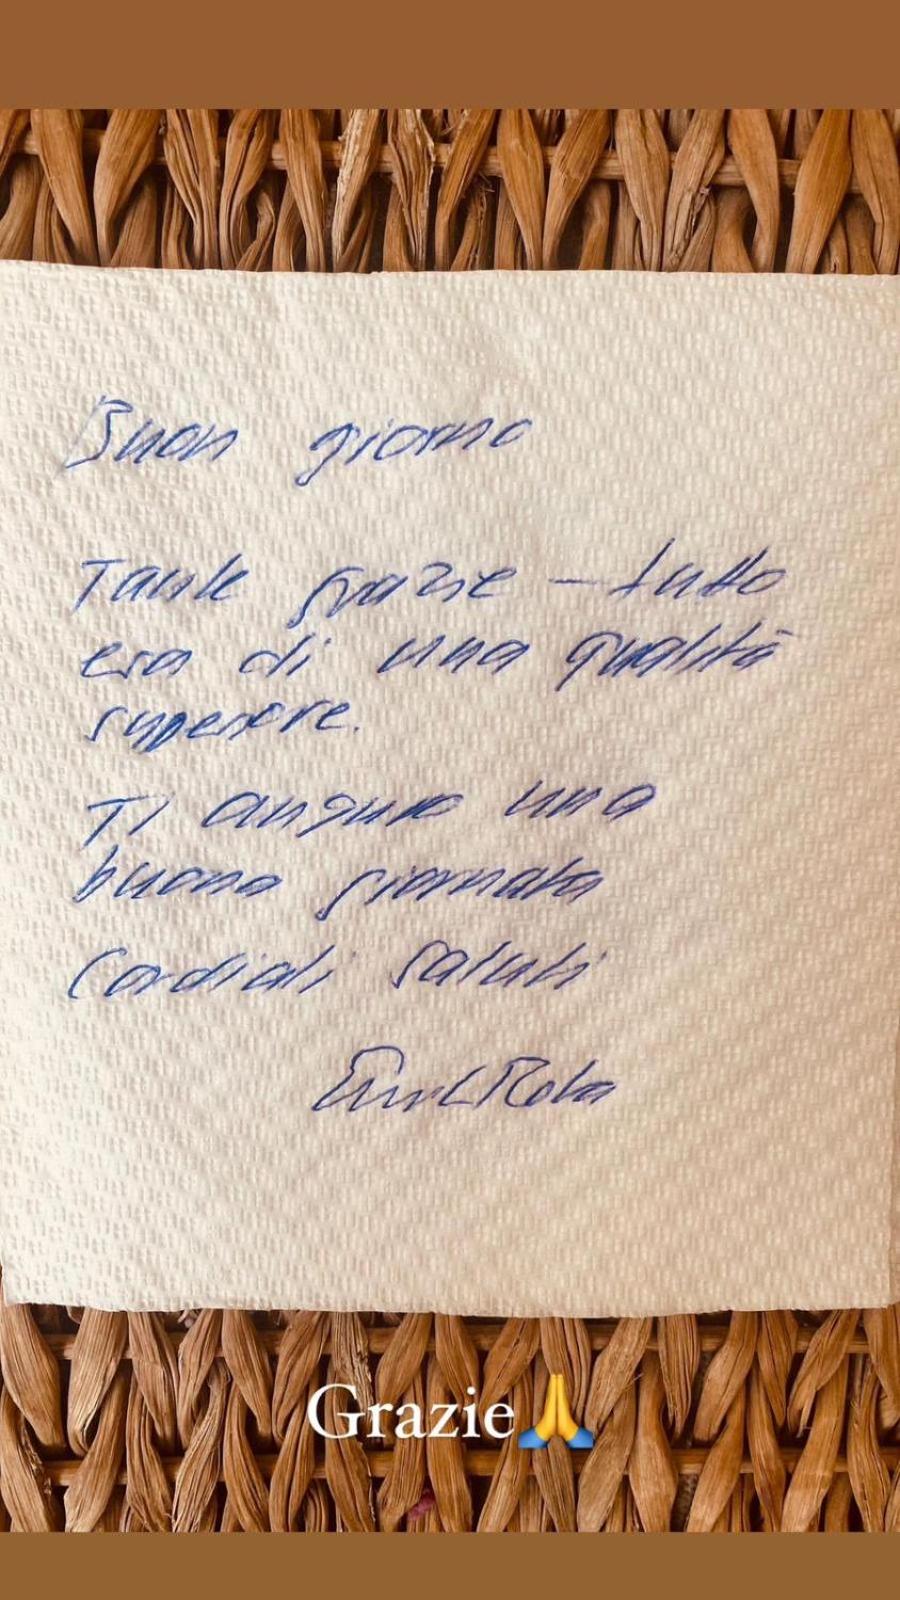 Buon giorno
Tante grazie - tutto
era di una qualità
superiore.
Ti auguro una
buona giornata
Cordiali saluti
Grazie🙏